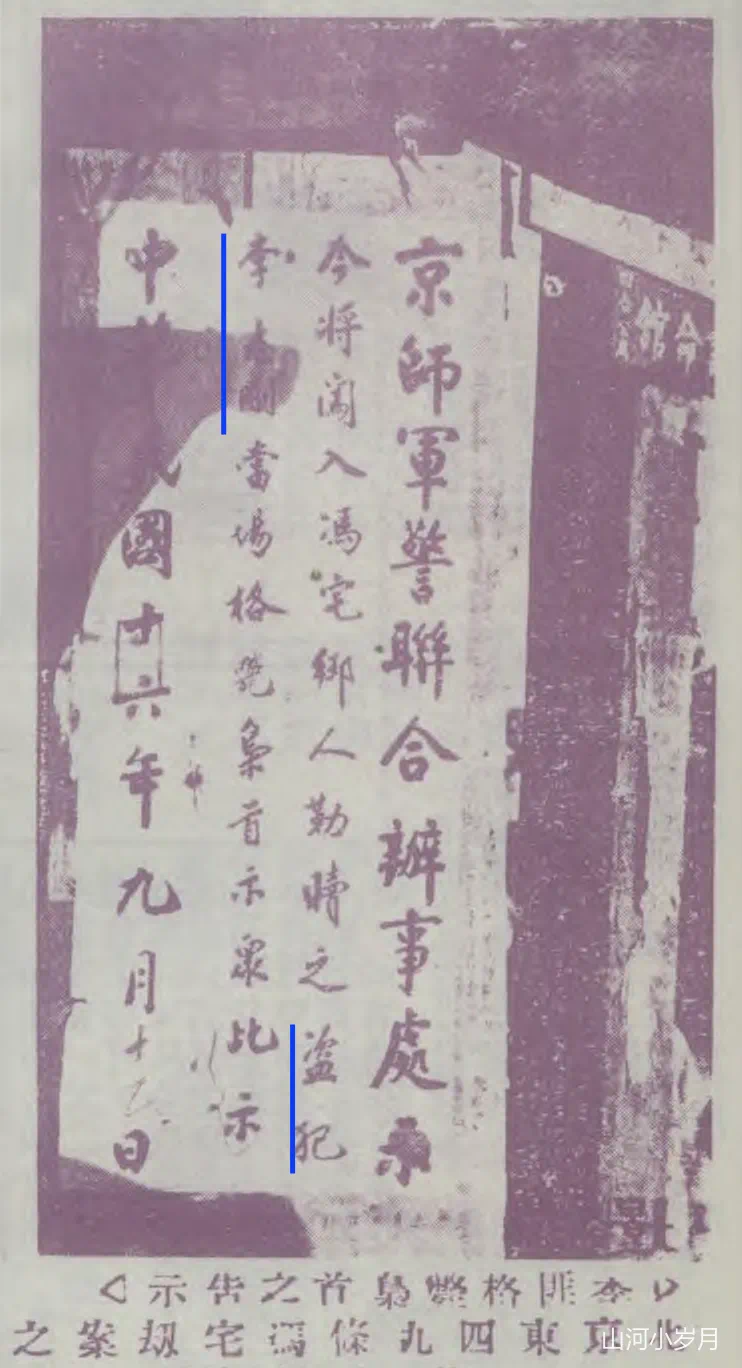 會館
京師軍警聯合辦事處示
今將闖入馮宅綁人勒贖之盜犯
李剛當場格斃梟首示眾此示
中國十六年九月十日
李匪格斃梟首之告示
北京東四九條馮宅刼案之
山河小岁月